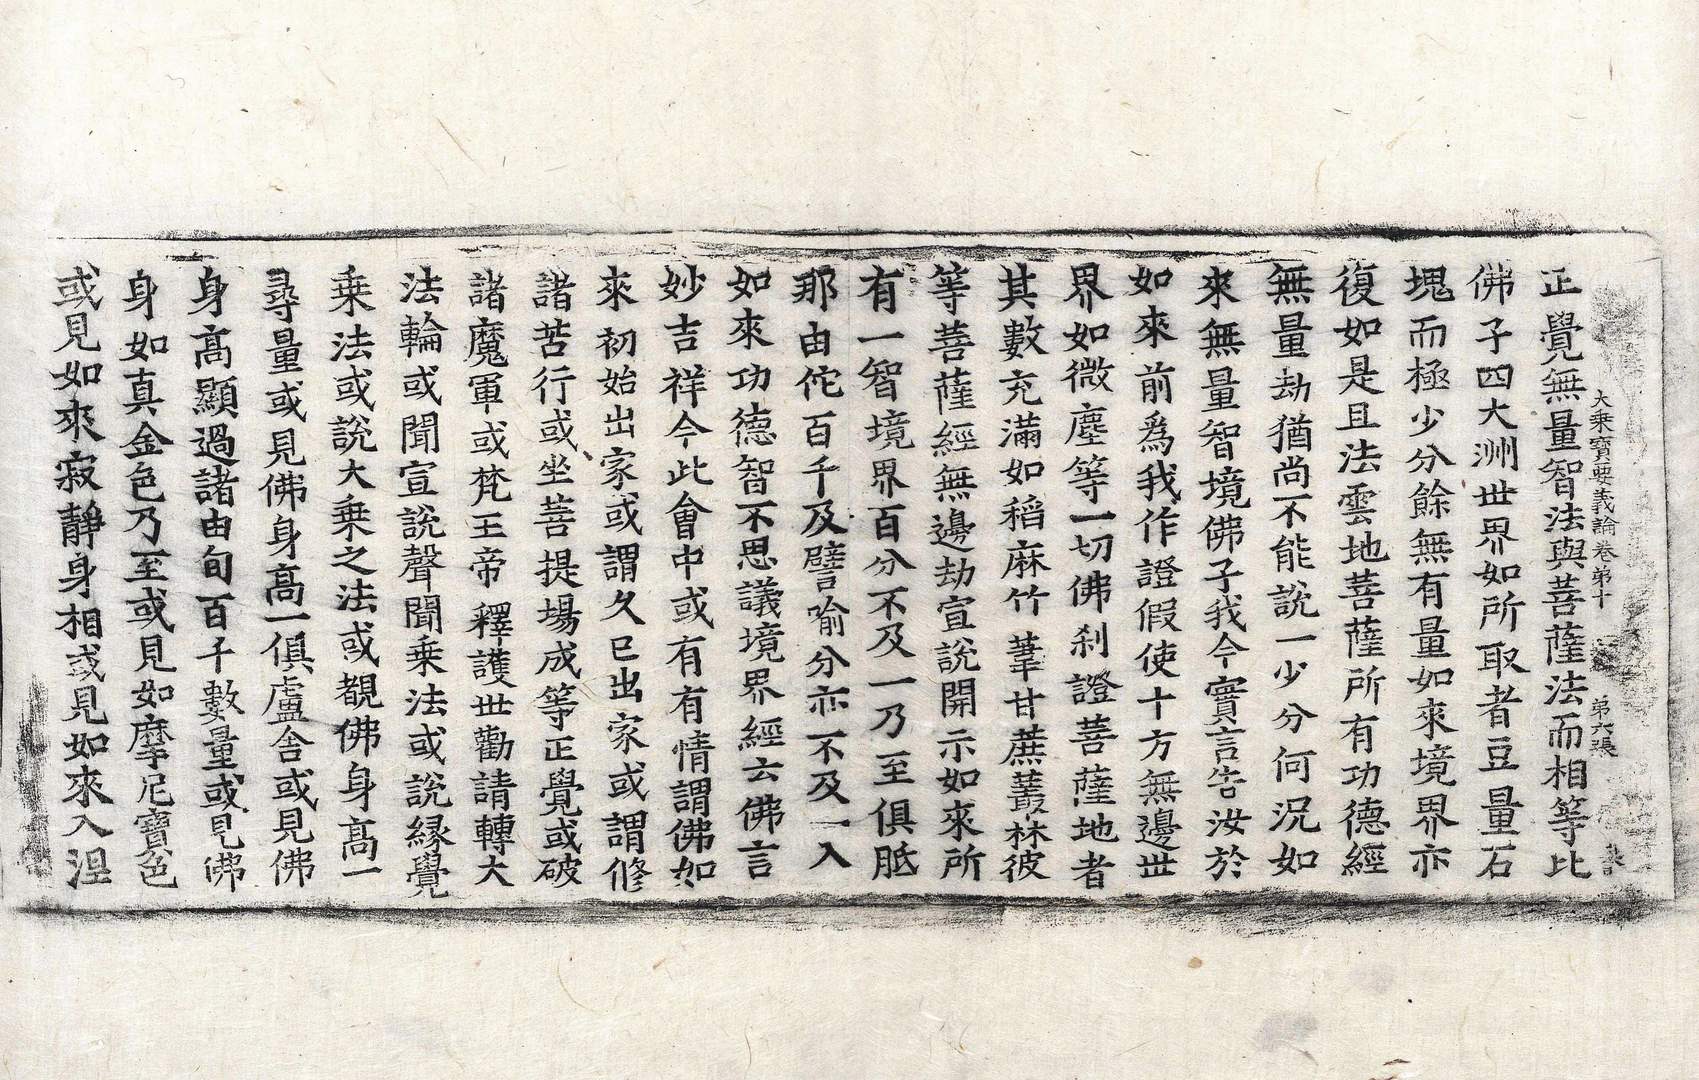 大乘寶要義論卷第十 第六張
正覺無量智法與菩薩法而相等比
佛子四大洲世界如所取者豆量石
塊而極少分餘無有量如來境界亦
復如是且法雲地菩薩所有功德經
無量劫猶尚不能說一少分何況如
來無量智境佛子我今實言告汝於
如來前爲我作證假使十方無邊世
界如微塵等一切佛刹證菩薩地者
其數充滿如稻麻竹葦甘蔗叢林彼
等菩薩經無邊劫宣說開示如來所
有一智境界百分不及一乃至俱胝
那由佗百千及譬喻分亦不及一入
如來功德智不思議境界經云佛言
妙吉祥今此會中或有有情謂佛如
來初始出家或謂久已出家或謂修
諸苦行或坐菩提場成等正覺或破
諸魔軍或梵王帝釋護世勸請轉大
法輪或聞宣說聲聞乘法或說緣覺
乘法或說大乘之法或覩佛身高一
尋量或見佛身高一俱盧舍或見佛
身高顯過諸由旬百千數量或見佛
身如真金色乃至或見如摩尼寶色
或見如來寂靜身相或見如來入涅